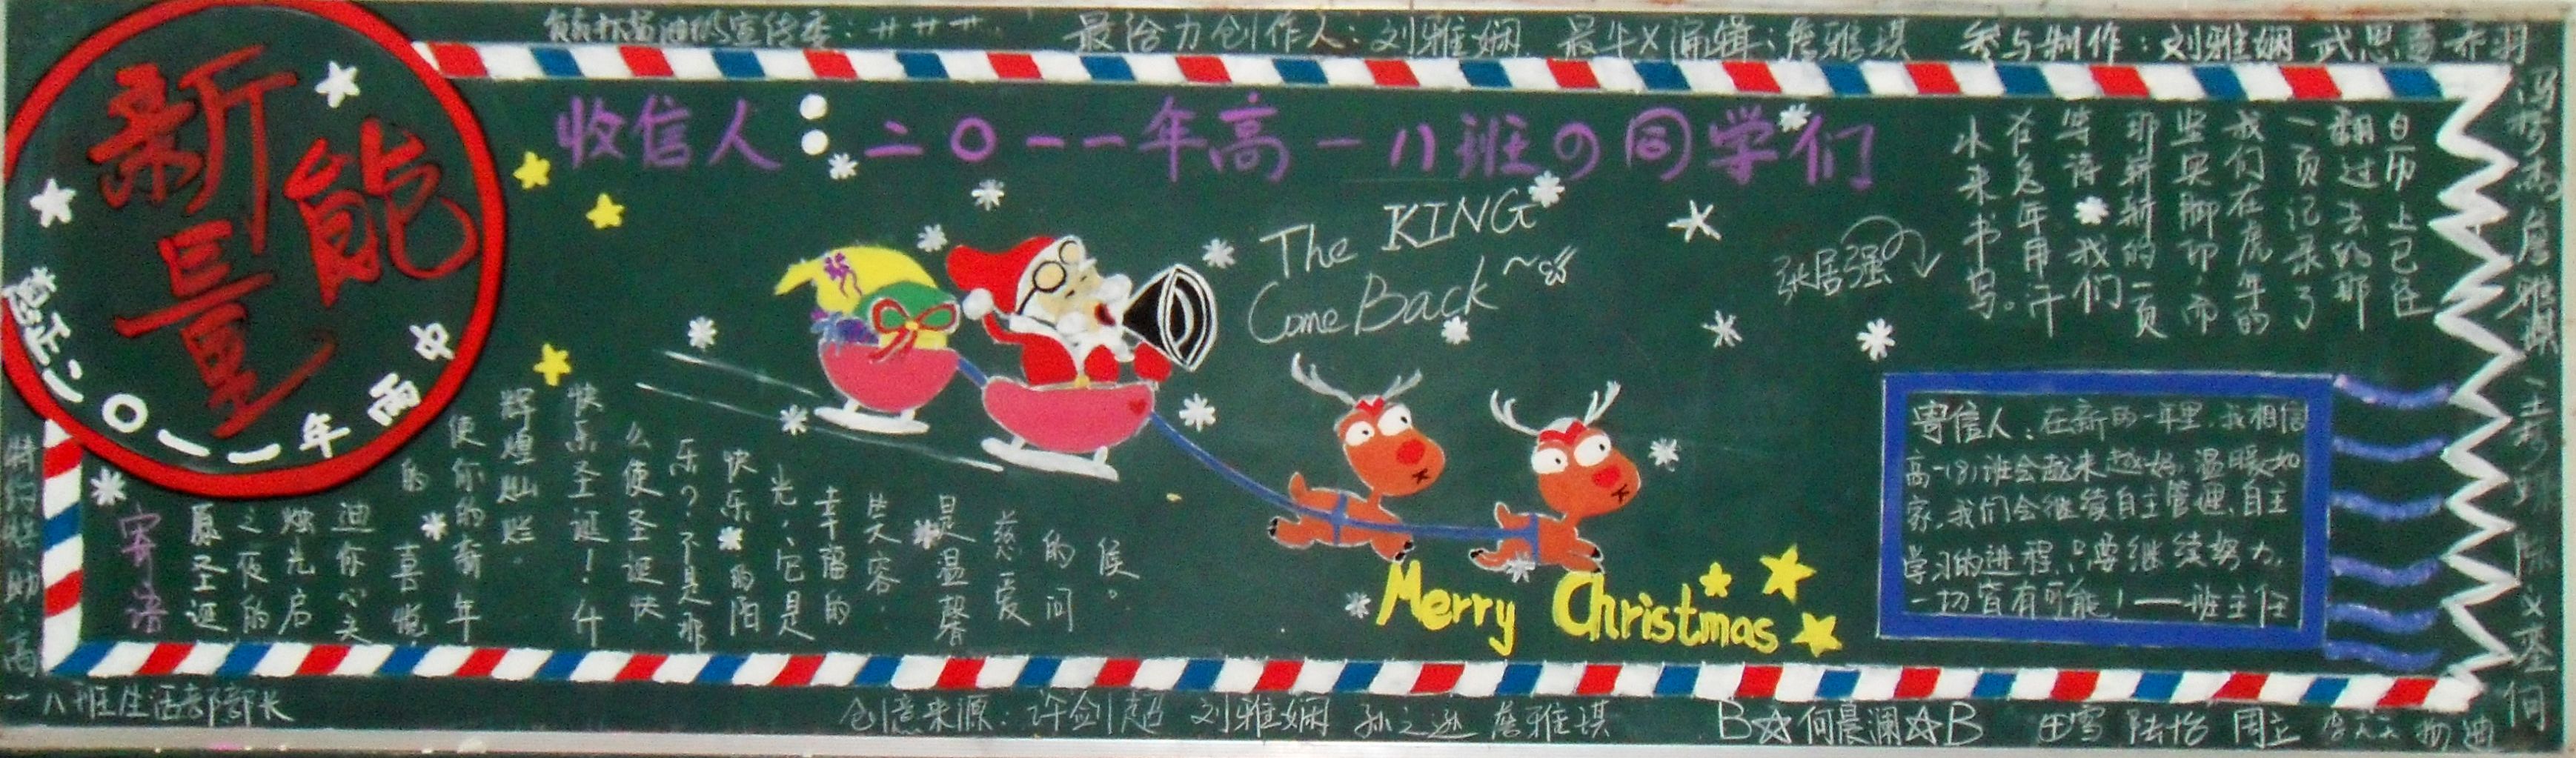 最给力创作人：刘雅娴 最牛X编辑：詹雅琪 参与制作：刘雅娴 武思
新能量
二〇一一年
收信人：二〇一一年高一八班の同学们
The KING
Come Back~
张居强
日历上已经
翻过去的那
一页记录了
我们在虎年的
坚实脚印，而
那崭新的一页
等待我们
在兔年用汗
水来书写。
寄信人：在新的一年里，我相信
高一(8)班会越来越好，温暖如
家，我们会继续自主管理、自主
学习的进程，只要继续努力，
一切皆有可能！——班主任
寄语
愿圣诞
之夜的
烛光启
迪你心头
的喜悦
使你的新年
辉煌灿烂。
快乐圣诞！什
么使圣诞快
乐？不是那
快乐的阳
光，它是
幸福的
笑容，
是温馨
慈爱
的问
候。
Merry Christmas
高
一八班生活部部长
创意来源：许剑超 刘雅娴 孙之逊 詹雅琪
B☆何晨澜☆B 田雪 陆怡 周立